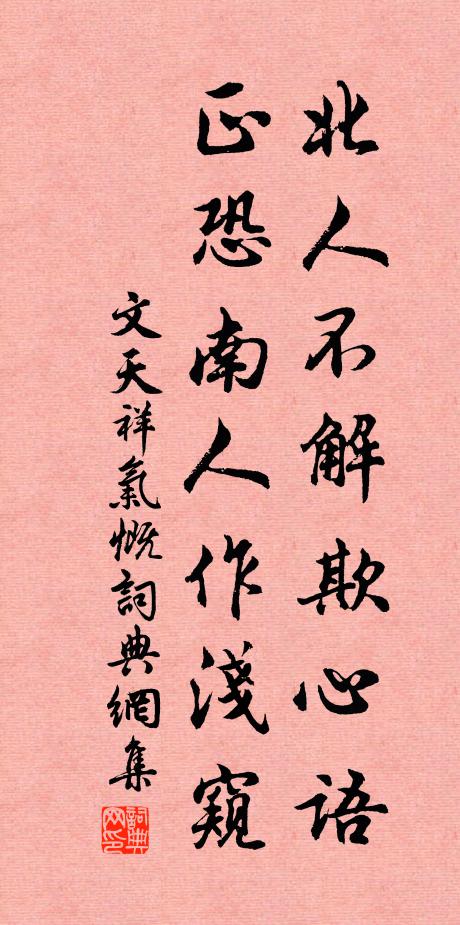 北人不解欺心語
正恐南人作淺窺
文天祥氣慨詞典網集
詞典网印